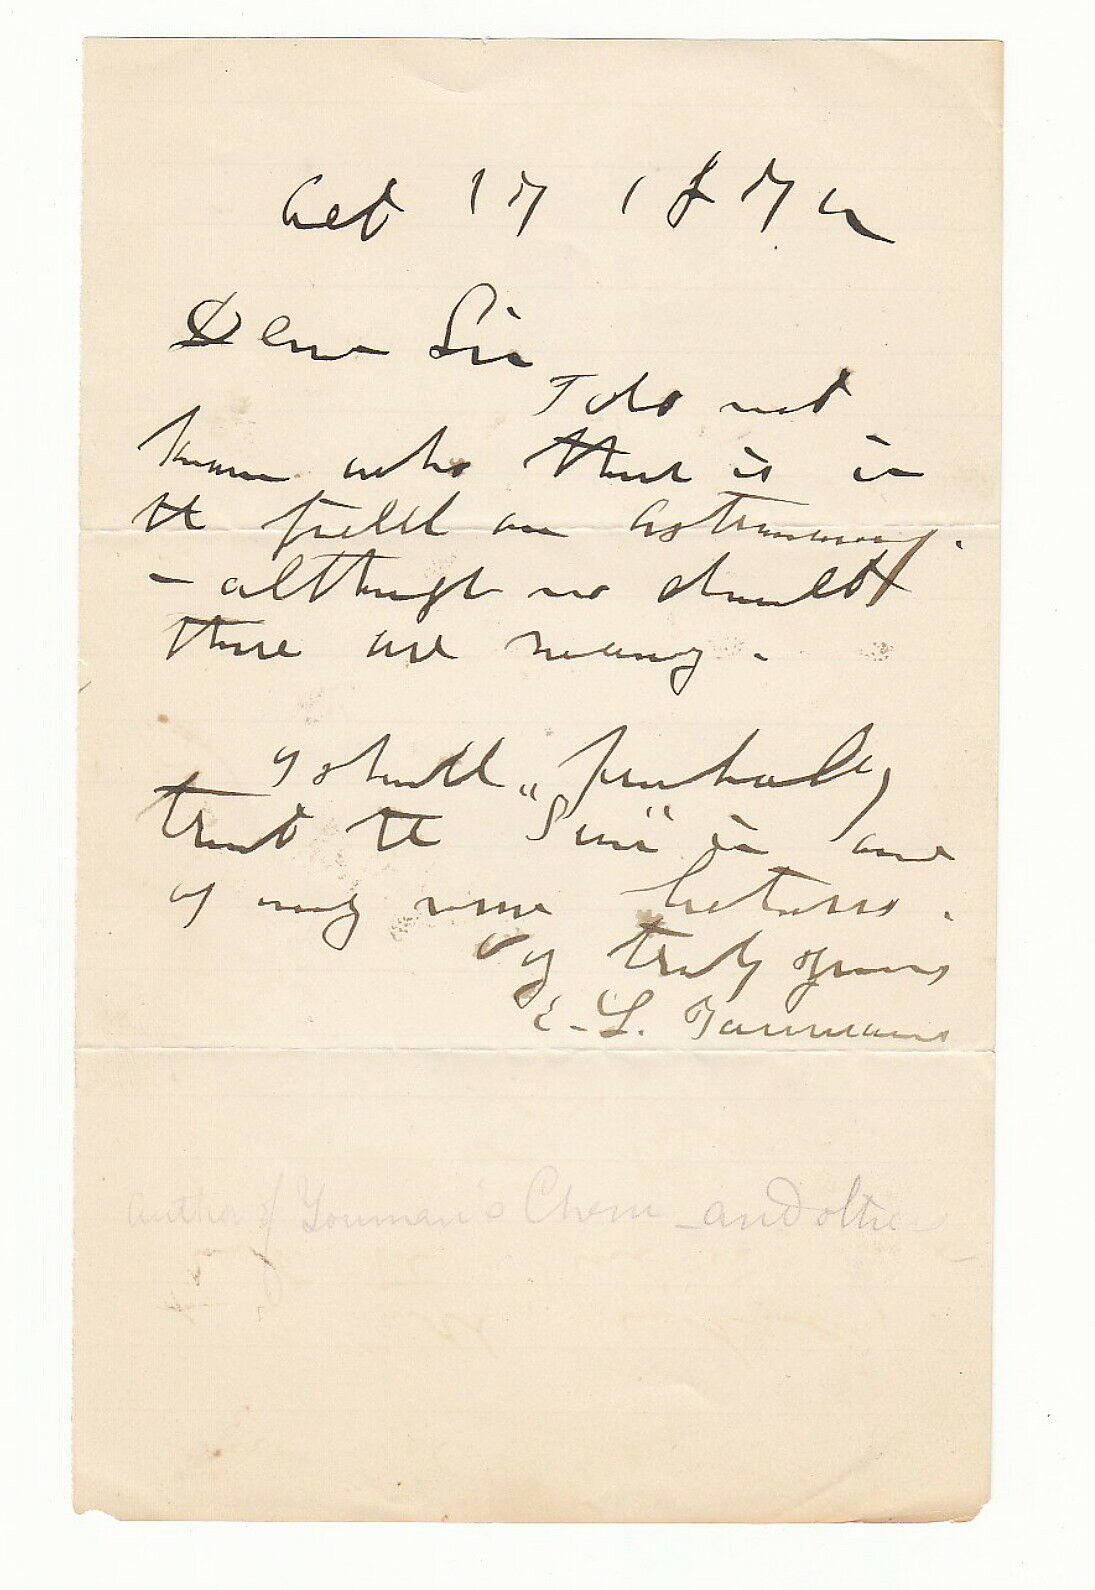 Oct 17 187
Dear Sir
I do not
know who there is in
the field on Astronomy.
– although no doubt
there are many.
I shall probably
treat the "Sun" in one
of my new lectures.
Vy truly yours
E. L. Youmans
author of Youman's Chem and other